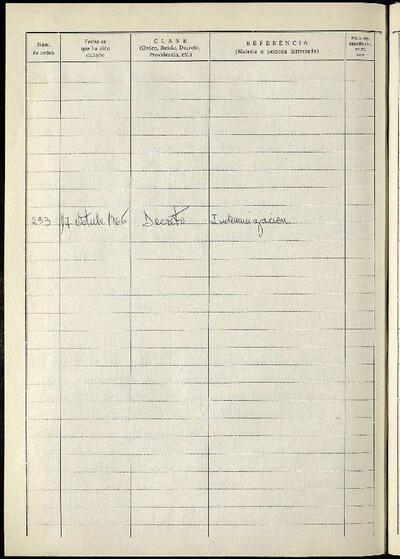 Núm. de orden
Fecha en que ha sido dictado
CLASE
(Orden, Bando, Decreto, Providencia, etc.)
REFERENCIA
(Materia o persona interesada)
233 17 octubre 1966 Decreto Indemnización